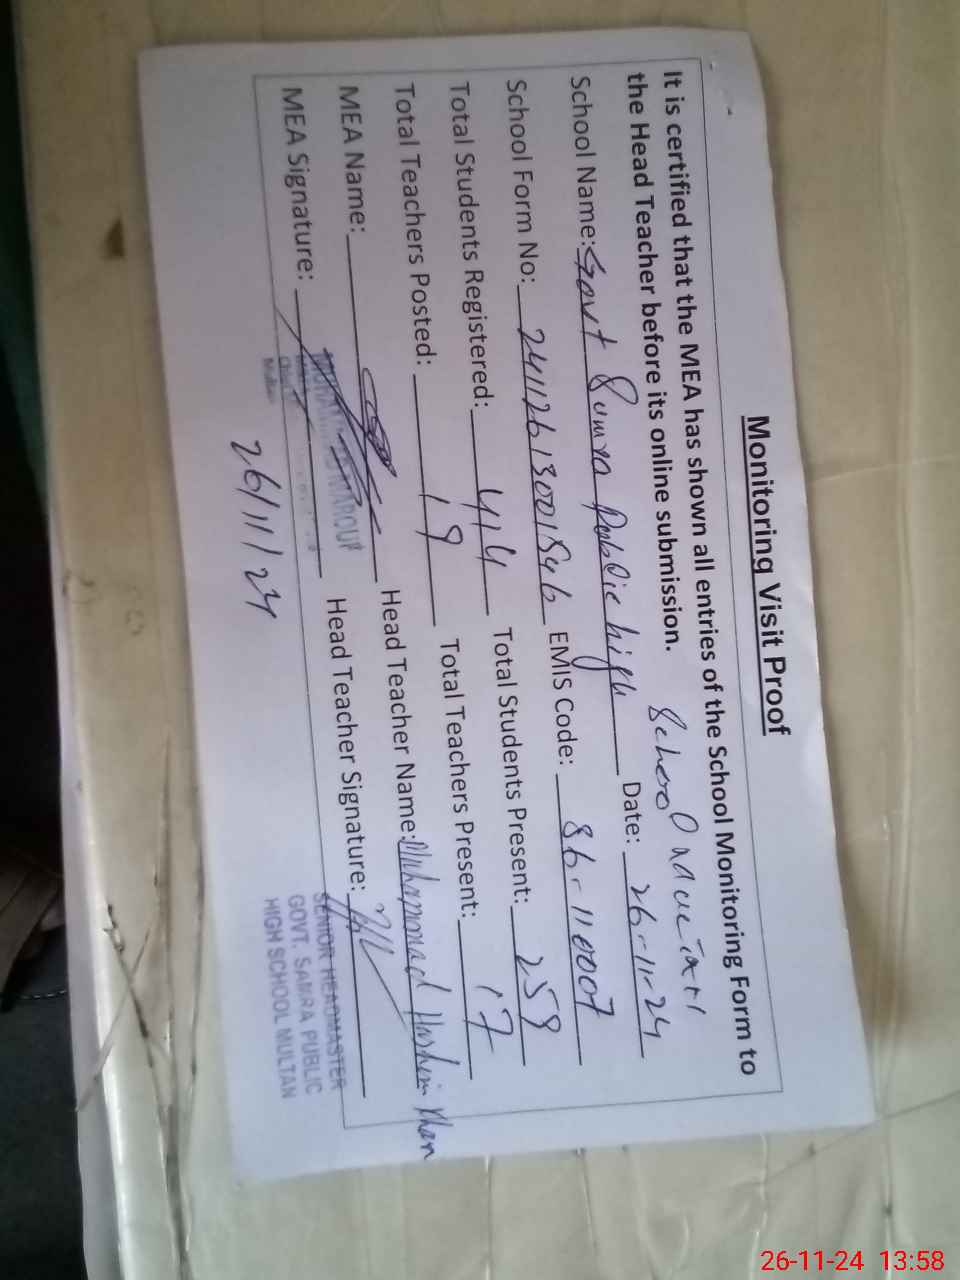 Monitoring Visit Proof
It is certified that the MEA has shown all entries of the School Monitoring Form to
the Head Teacher before its online submission.
School
School Name: Govt Sumra Public high Date: 26-11-24
School Form No: 24112613001546 EMIS Code: 36-110007
Total Students Registered: 414 Total Students Present: 259
Total Teachers Posted: 19 Total Teachers Present: 17
MEA Name: Head Teacher Name: Muhammad Hashim Khan
MEA Signature: Head Teacher Signature:
SENIOR HEADMASTER
GOVT. SAMRA PUBLIC
HIGH SCHOOL MULTAN
26/11/24
26-11-24 13:58